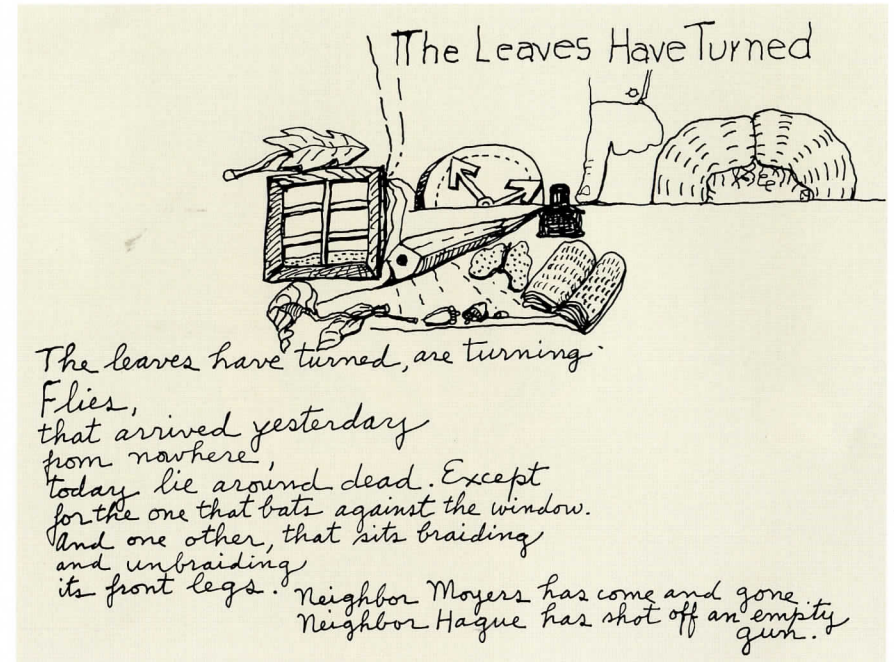 The Leaves Have Turned
The leaves have turned, are turning.
Flies,
that arrived yesterday
from nowhere,
today lie around dead. Except
for the one that bats against the window.
And one other, that sits braiding
and unbraiding
its front legs.
Neighbor Moyers has come and gone.
Neighbor Hague has shot off an empty
gun.